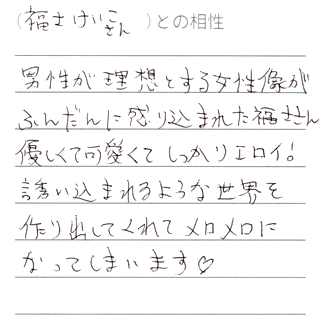 (福さけいこさん)との相性
男性が理想とする女性像が
ふんだんに盛り込まれた福ささん
優しくて可愛くてしっかりエロイ!
誘い込まれるような世界を
作り出してくれてメロメロに
なってしまいます♡